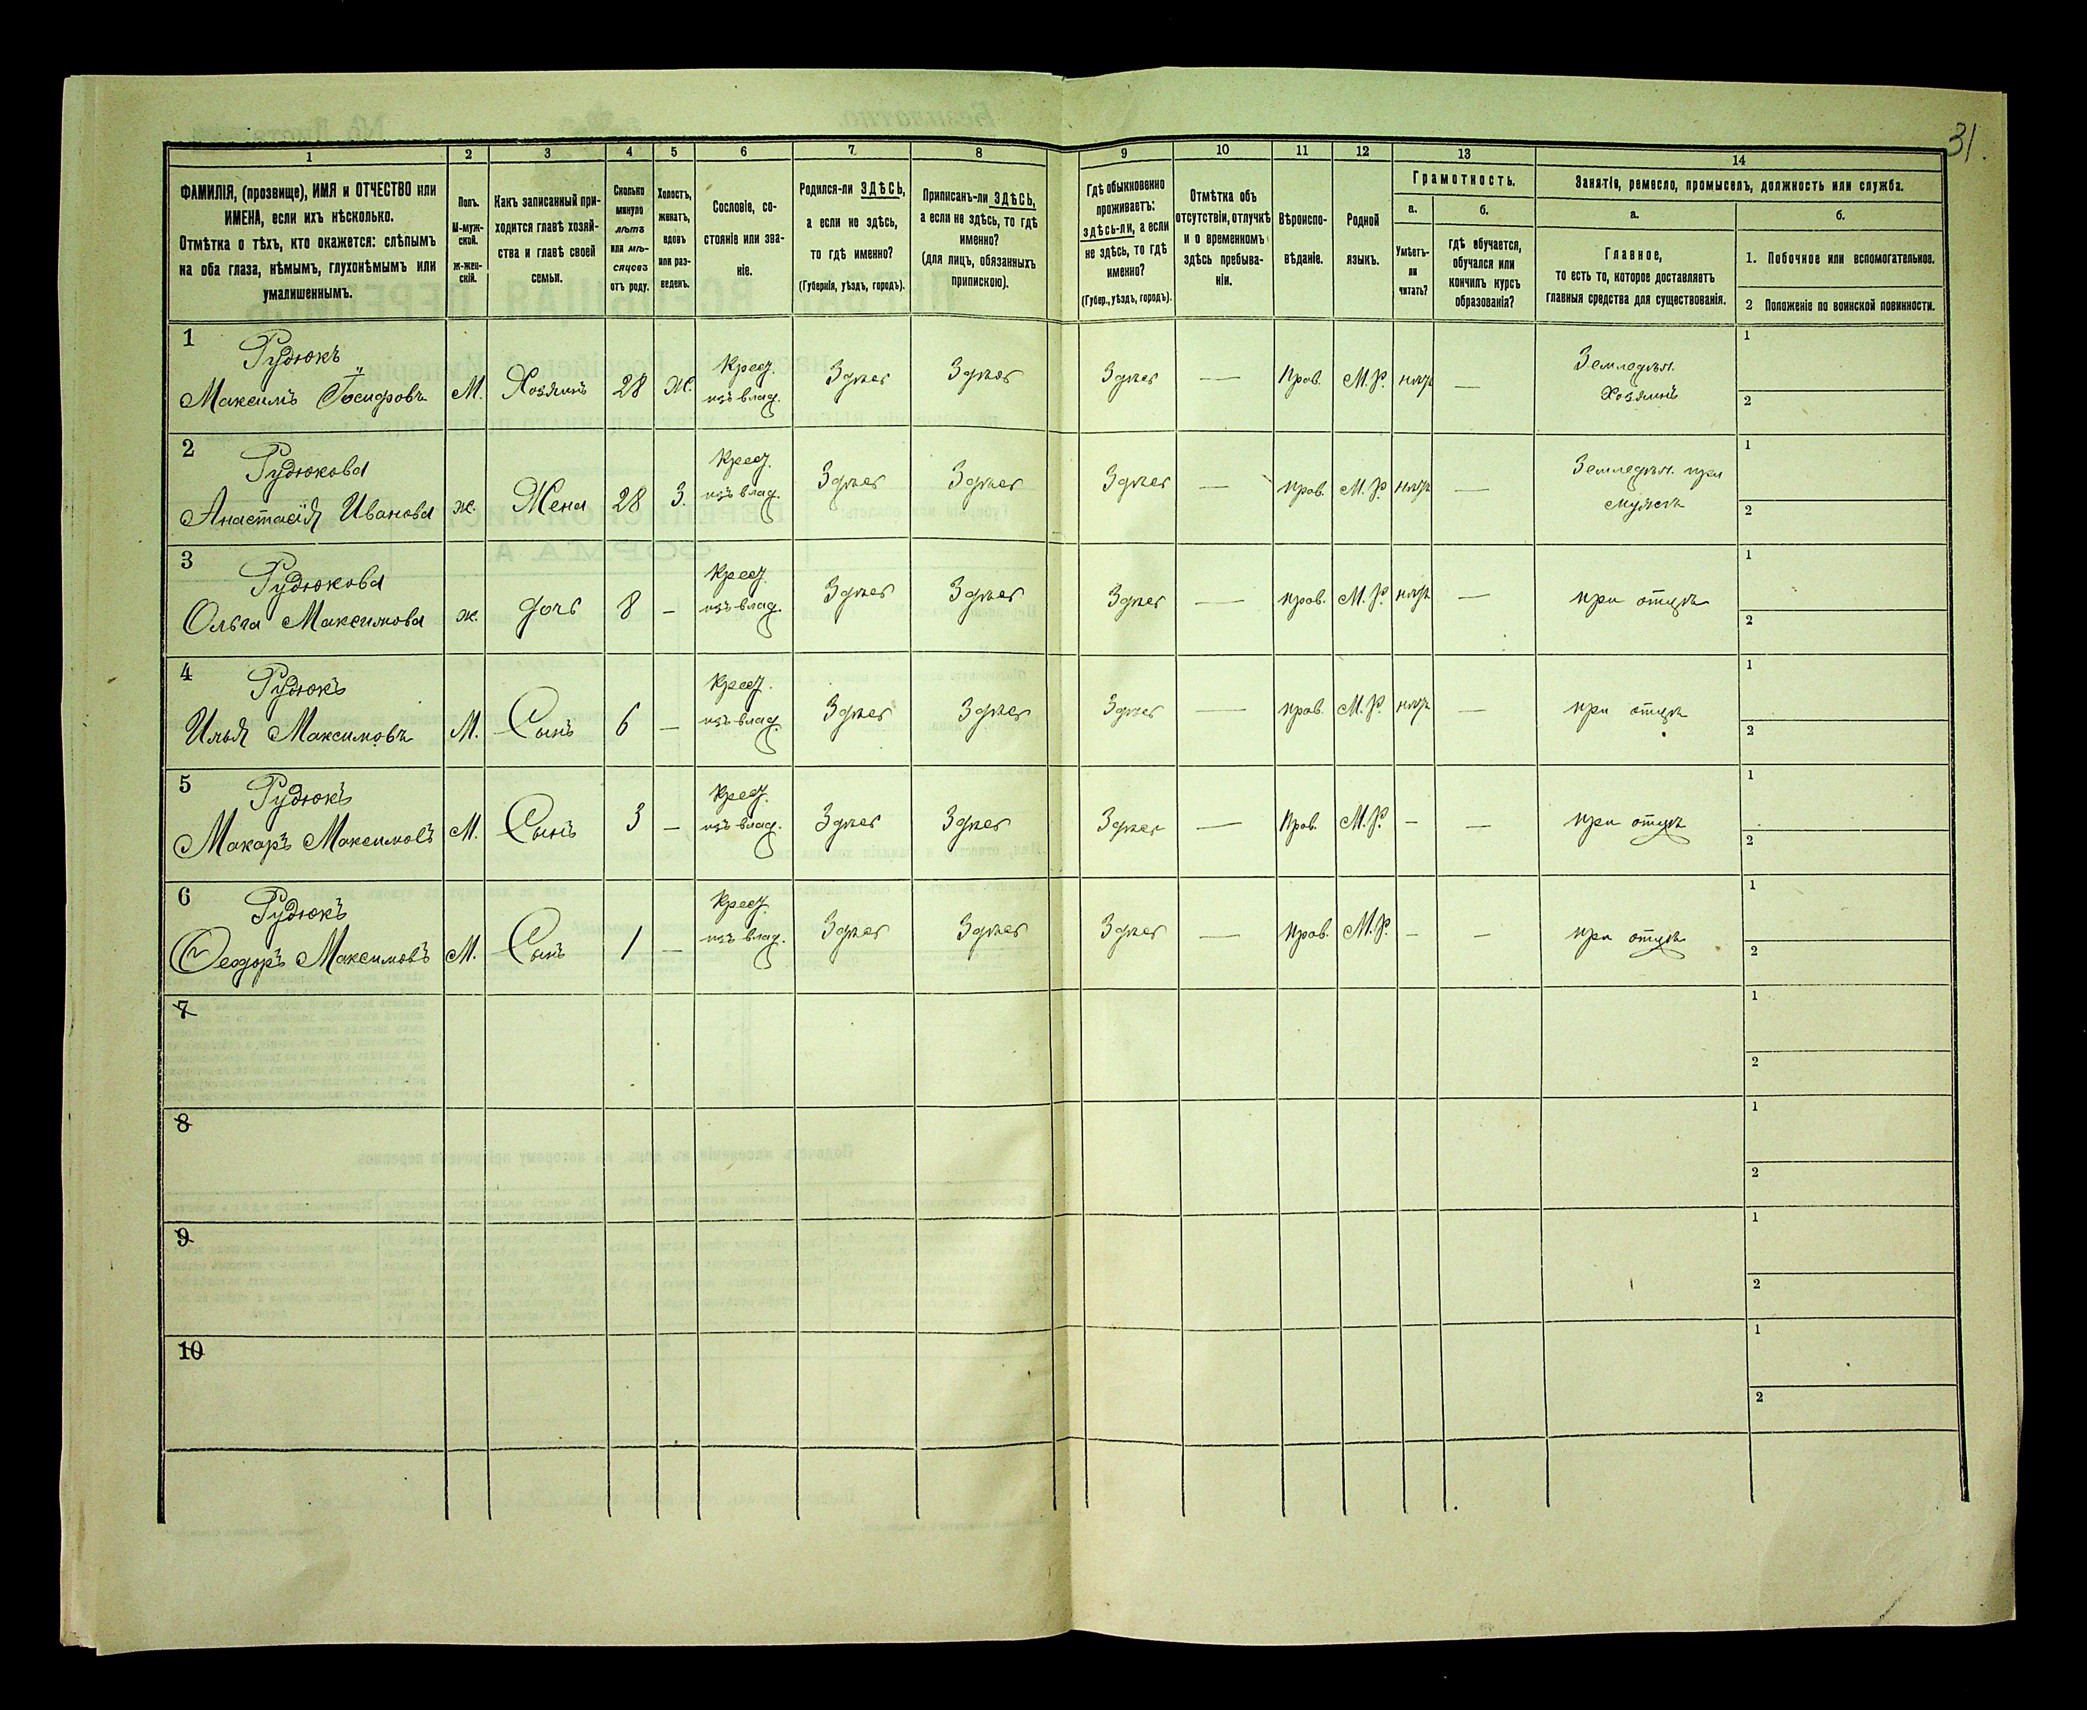 31.
1 2 3 4 5 6 7 8 9 10 11 12 13 14
ФАМИЛІЯ, (прозвище), ИМЯ и ОТЧЕСТВО или
ИМЕНА, если ихъ нѣсколько.
Отмѣтка о тѣхъ, кто окажется: слѣпымъ
на оба глаза, нѣмымъ, глухонѣмымъ или
умалишеннымъ.
Полъ.
М-муж-
ской.
ж-жен-
скій.
Какъ записанный при-
ходится главѣ хозяй-
ства и главѣ своей
семьи.
Сколько
минуло
лѣтъ
или мѣ-
сяцевъ
отъ роду.
Холостъ,
женатъ,
вдовъ
или раз-
веденъ.
Сословіе, со-
стояніе или зва-
ніе.
Родился-ли ЗДѢСЬ,
а если не здѣсь,
то гдѣ именно?
(Губернія, уѣздъ, городъ).
Приписанъ-ли ЗДѢСЬ,
а если не здѣсь, то гдѣ
именно?
(для лицъ, обязанныхъ
припискою).
Гдѣ обыкновенно
проживаетъ:
здѣсь-ли, а если
не здѣсь, то гдѣ
именно?
(Губер., уѣздъ, городъ).
Отмѣтка объ
отсутствіи, отлучкѣ
и о временномъ
здѣсь пребыва-
ніи.
Вѣроиспо-
вѣданіе.
Родной
языкъ.
Грамотность.
а.
Умѣетъ-
ли
читать?
б.
гдѣ обучается,
обучался или
кончилъ курсъ
образованія?
Занятіе, ремесло, промыселъ, должность или служба.
а.
Главное,
то есть то, которое доставляетъ
главныя средства для существованія.
б.
1. Побочное или вспомогательное.
2 Положеніе по воинской повинности.
1
Рудюкъ
Максимъ Іосифовъ М. Хозяинъ 28 Ж.
Крест.
изъ влад.
Здѣсь Здѣсь Здѣсь — Прав. М.Р. нѣтъ —
Земледѣл.
Хозяинъ
1
2
2
Рудюкова
Анастасія Иванова ж. Жена 28 З.
Крест.
изъ влад.
Здѣсь Здѣсь Здѣсь — прав. М.Р. нѣтъ —
Земледѣл. при
мужѣ
1
2
3
Рудюкова
Ольга Максимова ж. дочь 8 —
Крест.
изъ влад.
Здѣсь Здѣсь Здѣсь — прав. М.Р. нѣтъ —
при отцѣ
1
2
4
Рудюкъ
Илья Максимовъ М. Сынъ 6 —
Крест.
изъ влад.
Здѣсь Здѣсь Здѣсь — прав. М.Р. нѣтъ —
при отцѣ
1
2
5
Рудюкъ
Макаръ Максимовъ М. Сынъ 3 —
Крест.
изъ влад.
Здѣсь Здѣсь Здѣсь — Прав. М.Р. — —
при отцѣ
1
2
6
Рудюкъ
Ѳеодоръ Максимовъ М. Сынъ 1 —
Крест.
изъ влад.
Здѣсь Здѣсь Здѣсь — Прав. М.Р. — —
при отцѣ
1
2
7
1
2
8
1
2
9
1
2
10
1
2